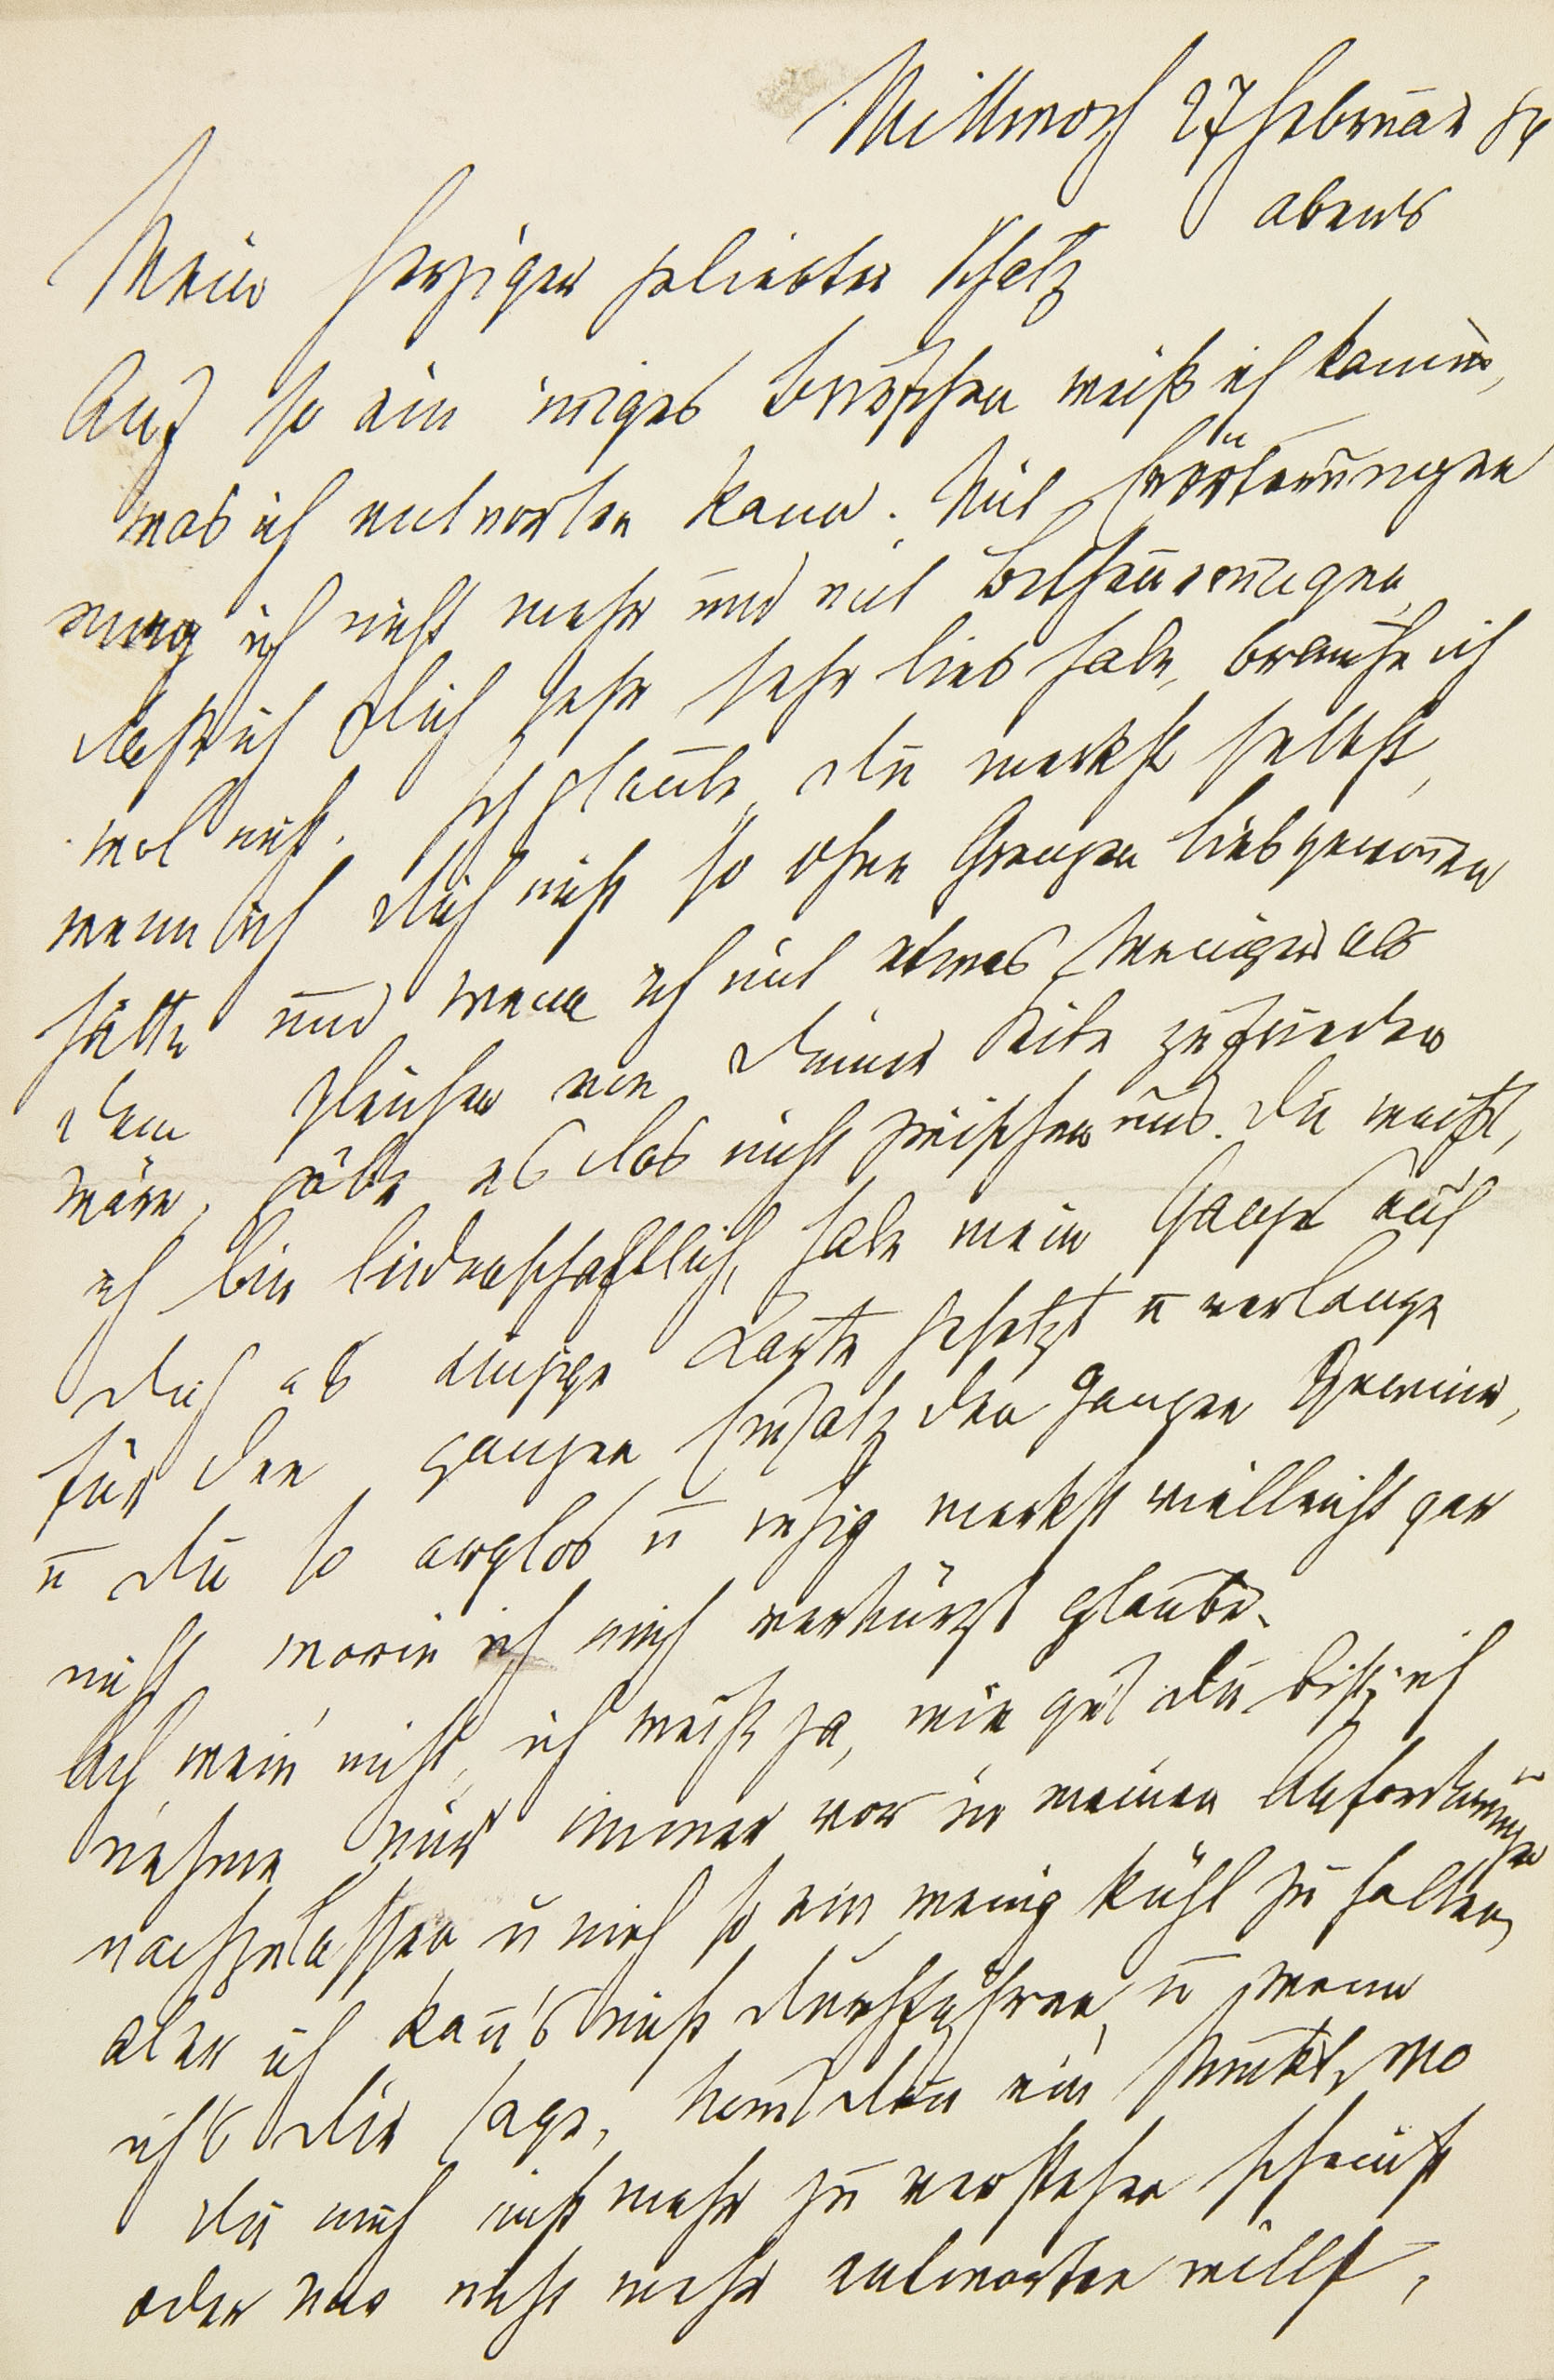 Mittwoch 27 Februar 84
abends
Mein herziger geliebter Schatz
Auf so ein inniges Briefchen weiß ich kaum,
was ich antworten kann. Mit Erörterungen
mag ich nicht mehr und mit Betheuerungen,
daß ich Dich sehr sehr lieb habe, brauche ich
wol nicht. Ich glaube, Du merkst selbst,
wenn ich Dich nicht so ohne Grenzen liebgewonnen
hätte und wenn ich mit etwas Weniger als
dem gleichen von Deiner Seite zufrieden
wäre, gäbe es das nicht zwischen uns. Du weißt,
ich bin leidenschaftlich, habe mein Ganzes auf
Dich als einzige Karte gesetzt u verlange
für den ganzen Einsatz den ganzen Gewinn,
u Du so arglos u ruhig merkst vielleicht gar
nicht worin ich mich verkürzt glaube.
Ach wein' nicht, ich weiß ja, wie gut Du bist; ich
nehme mir immer vor in meinen Anforderungen
nachzulassen u mich so ein wenig kühl zu halten,
aber ich kann's nicht durchführen, u wenn
ich's Dir sage, kommt dann ein Punkt, wo
Du mich nicht mehr zu verstehen scheinst
oder mir nicht mehr antworten willst,